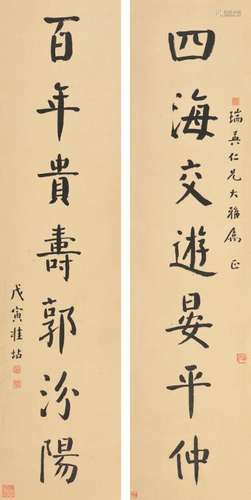 瑞仁兄大雅屬正
四海交遊晏平仲
百年貴壽郭汾陽
戊寅桂坫